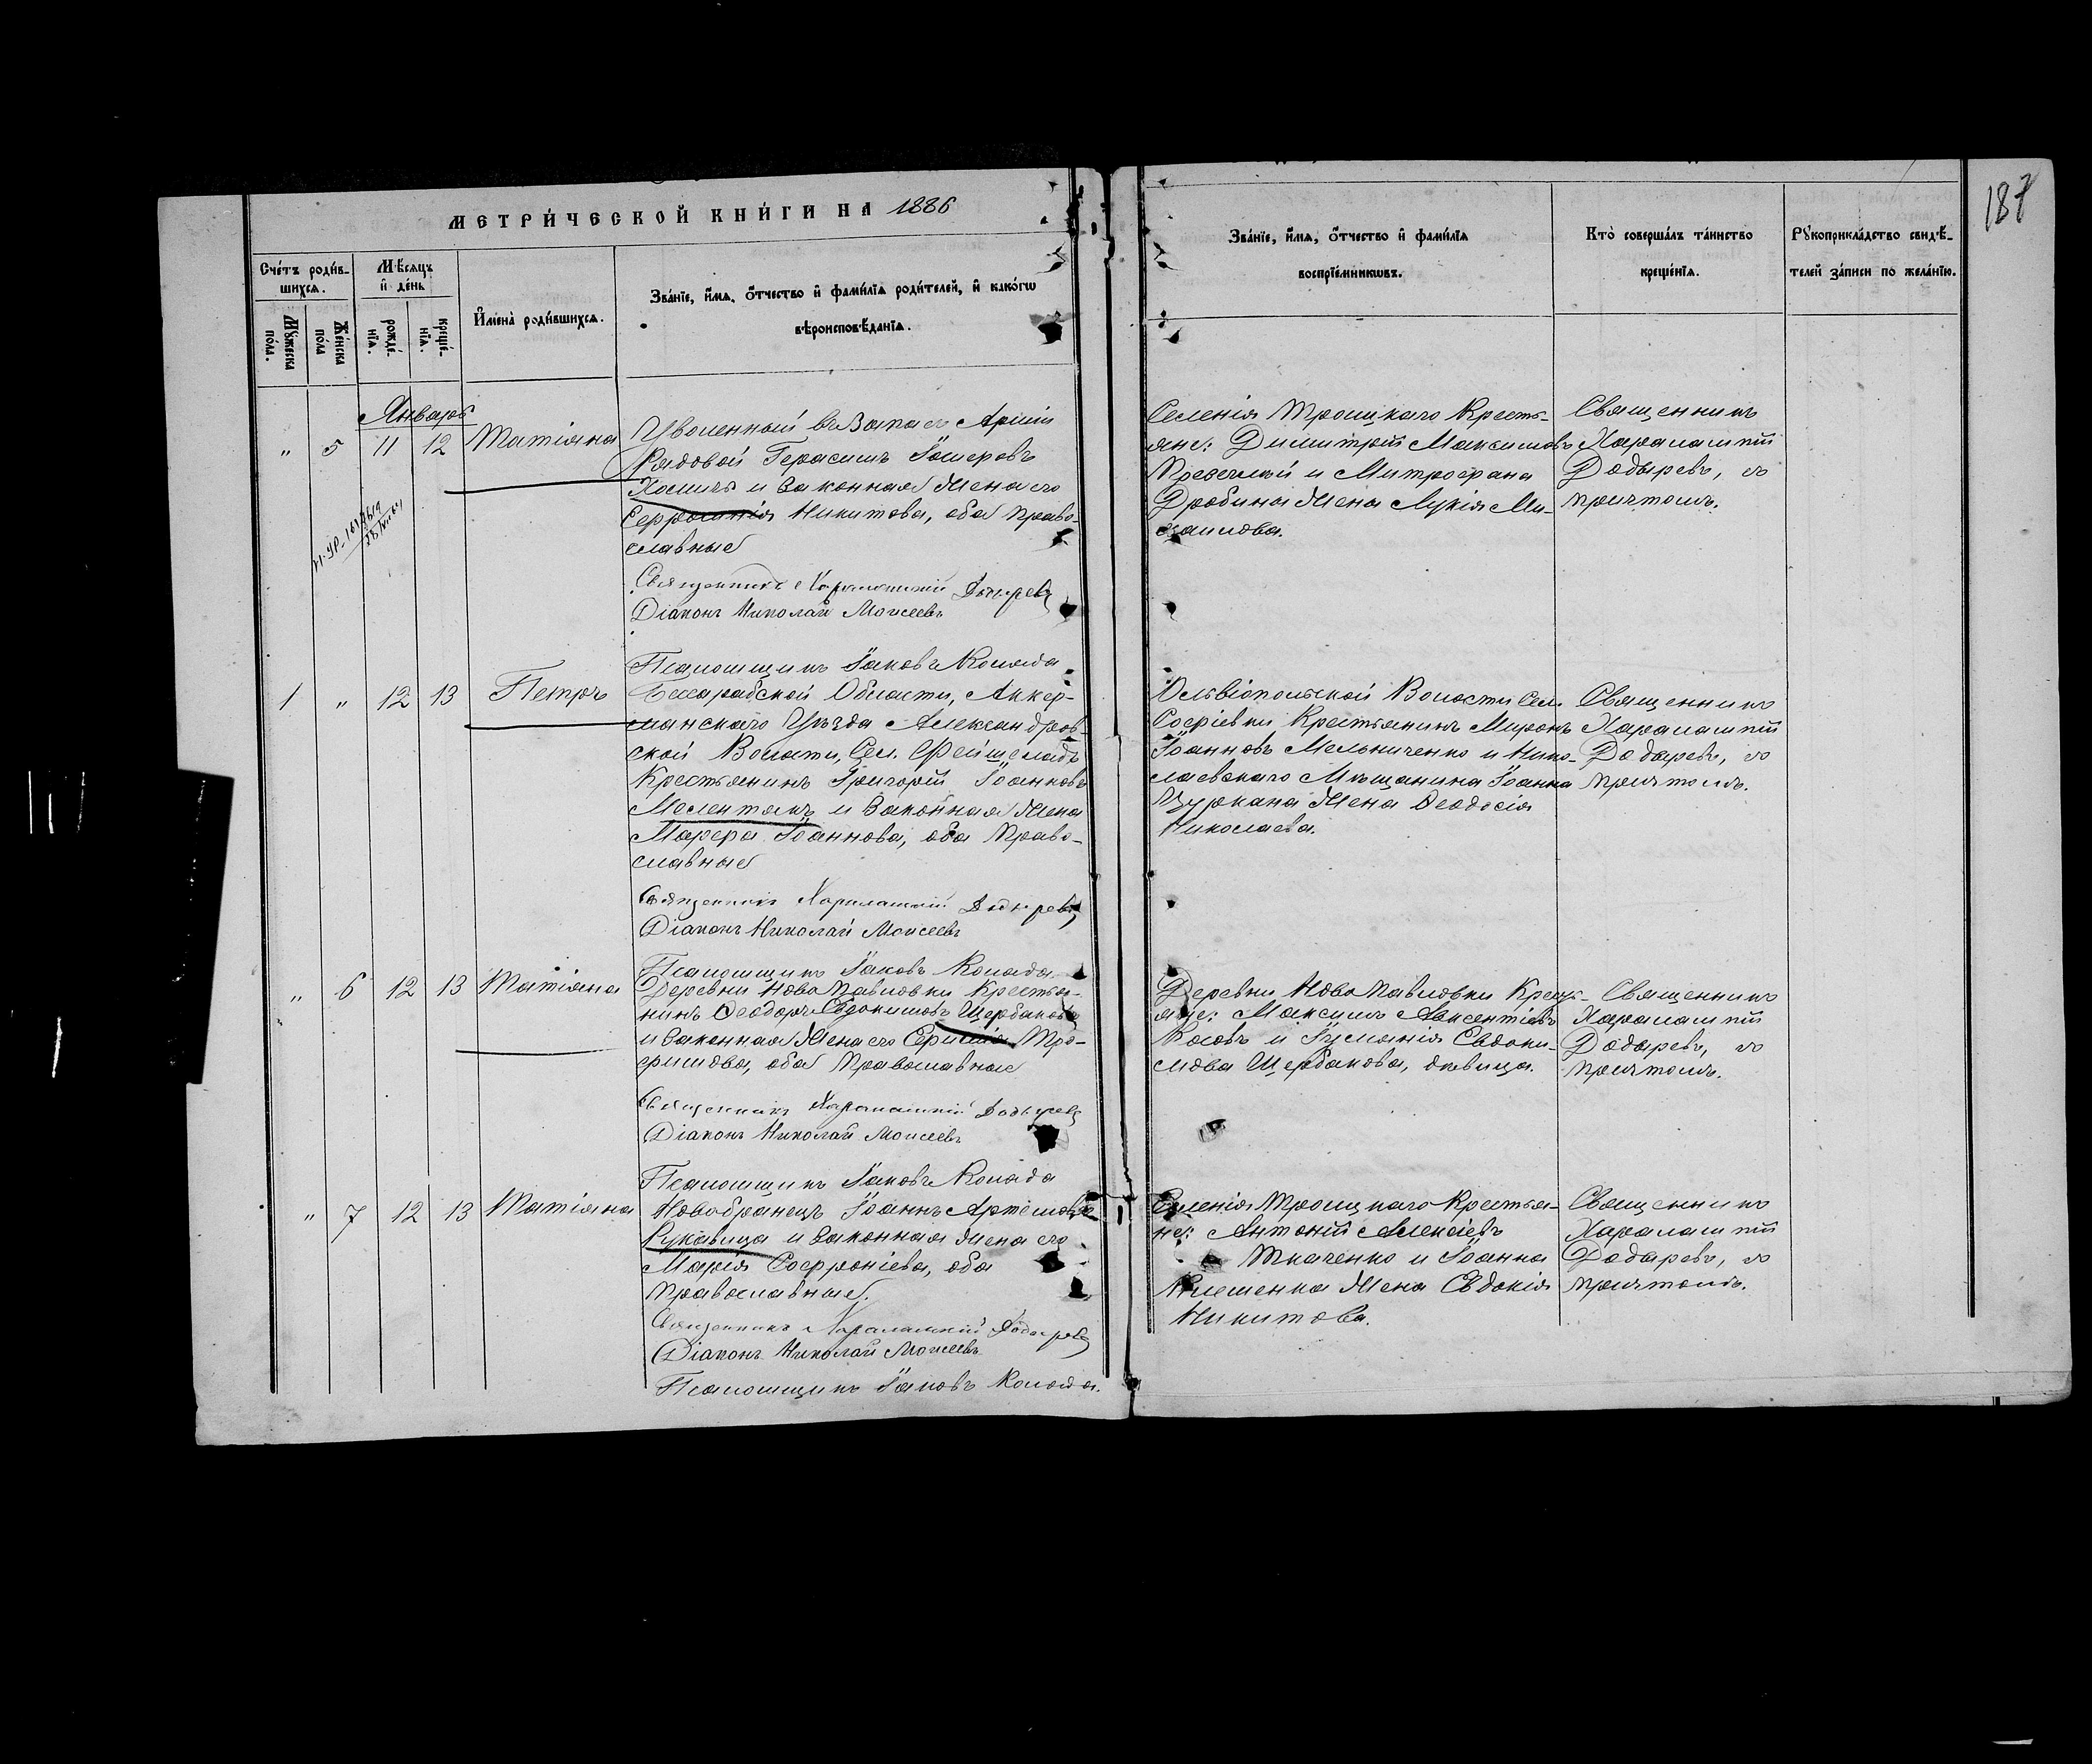 МЕТРИ́ЧЕСКОЙ КНИ́ГИ НА 1886
187
Сче́тъ роди́в-
шихся.
Мѣ́сяцъ
и҆ де́нь
Мꙋ́жеска
по́ла.
Же́нска
по́ла
рожде́-
нїѧ.
креще́-
нїѧ.
И҆мена̀ роди́вшихся.
Зва́нїе, и҆́мѧ, ѻ҆́тчество и҆ фами́лїѧ роди́телей, и҆ како́гѡ
вѣроисповѣ́данїѧ.
Зва́нїе, и҆́мѧ, ѻ҆́тчество и҆ фами́лїѧ
воспрїе́мникѡвъ.
Кто̀ соверша́лъ та́инство
креще́нїѧ.
Рꙋкоприкла́дство свидѣ́-
телей за́писи по жела́нїю.
Январь
" 5 11 12 Татіана
Уволенный въ Запасъ Арміи
Рядовой Герасимъ
и законная Жена его
Никитова, оба Право-
славные
Священникъ Харалампій Додыревъ
Діаконъ Николай Моисеевъ
Псаломщикъ Іаковъ Коляда
Селенія Троицкаго Кресть-
яне: Димитрій Максимовъ
и Митрофана
Дробина Жена Лукія Ми-
хаилова.
Священникъ
Харалампій
Додыревъ, съ
причтомъ.
1 " 12 13 Петръ
Бессарабской Области, Аккер-
манскаго Уѣзда Александров-
ской Волости, Сел.
Крестьянинъ Григорій Іоанновъ
Мелентьевъ и Законная Жена
Марфа Іоаннова, оба Право-
славные
Священникъ Харалампій Додыревъ
Діаконъ Николай Моисеевъ
Псаломщикъ Іаковъ Коляда.
Ольвіопольской Волости Сел.
Софіевки Крестьянинъ Миронъ
Іоанновъ Мельниченко и Нико-
лаевскаго Мѣщанина Іоанна
Цуркана Жена Ѳеодосія
Николаева.
Священникъ
Харалампій
Додыревъ, съ
причтомъ.
" 6 12 13 Татіана
Деревни Новопавловки Крестья-
нинъ Ѳеодоръ Евдокимовъ Щербаковъ
и законная Жена его Тро-
фимова, оба Православные
Священникъ Харалампій Додыревъ
Діаконъ Николай Моисеевъ
Псаломщикъ Іаковъ Коляда
Деревни Новопавловки Кресть-
яне: Максимъ Авксентіевъ
Косовъ и Іуліанія Евдоки-
мова Щербакова, дѣвица.
Священникъ
Харалампій
Додыревъ, съ
причтомъ.
" 7 12 13 Татіана
Новобранецъ Іоаннъ Артемовъ
Рукавица и законная Жена его
Марія Софроніева, оба
Православные.
Священникъ Харалампій Додыревъ
Діаконъ Николай Моисеевъ
Псаломщикъ Іаковъ Коляда.
Селенія Троицкаго Крестья-
не: Антоній Алексіевъ
Ткаченко и Іоанна
Клешенка Жена Евдокія
Никитова.
Священникъ
Харалампій
Додыревъ, съ
причтомъ.